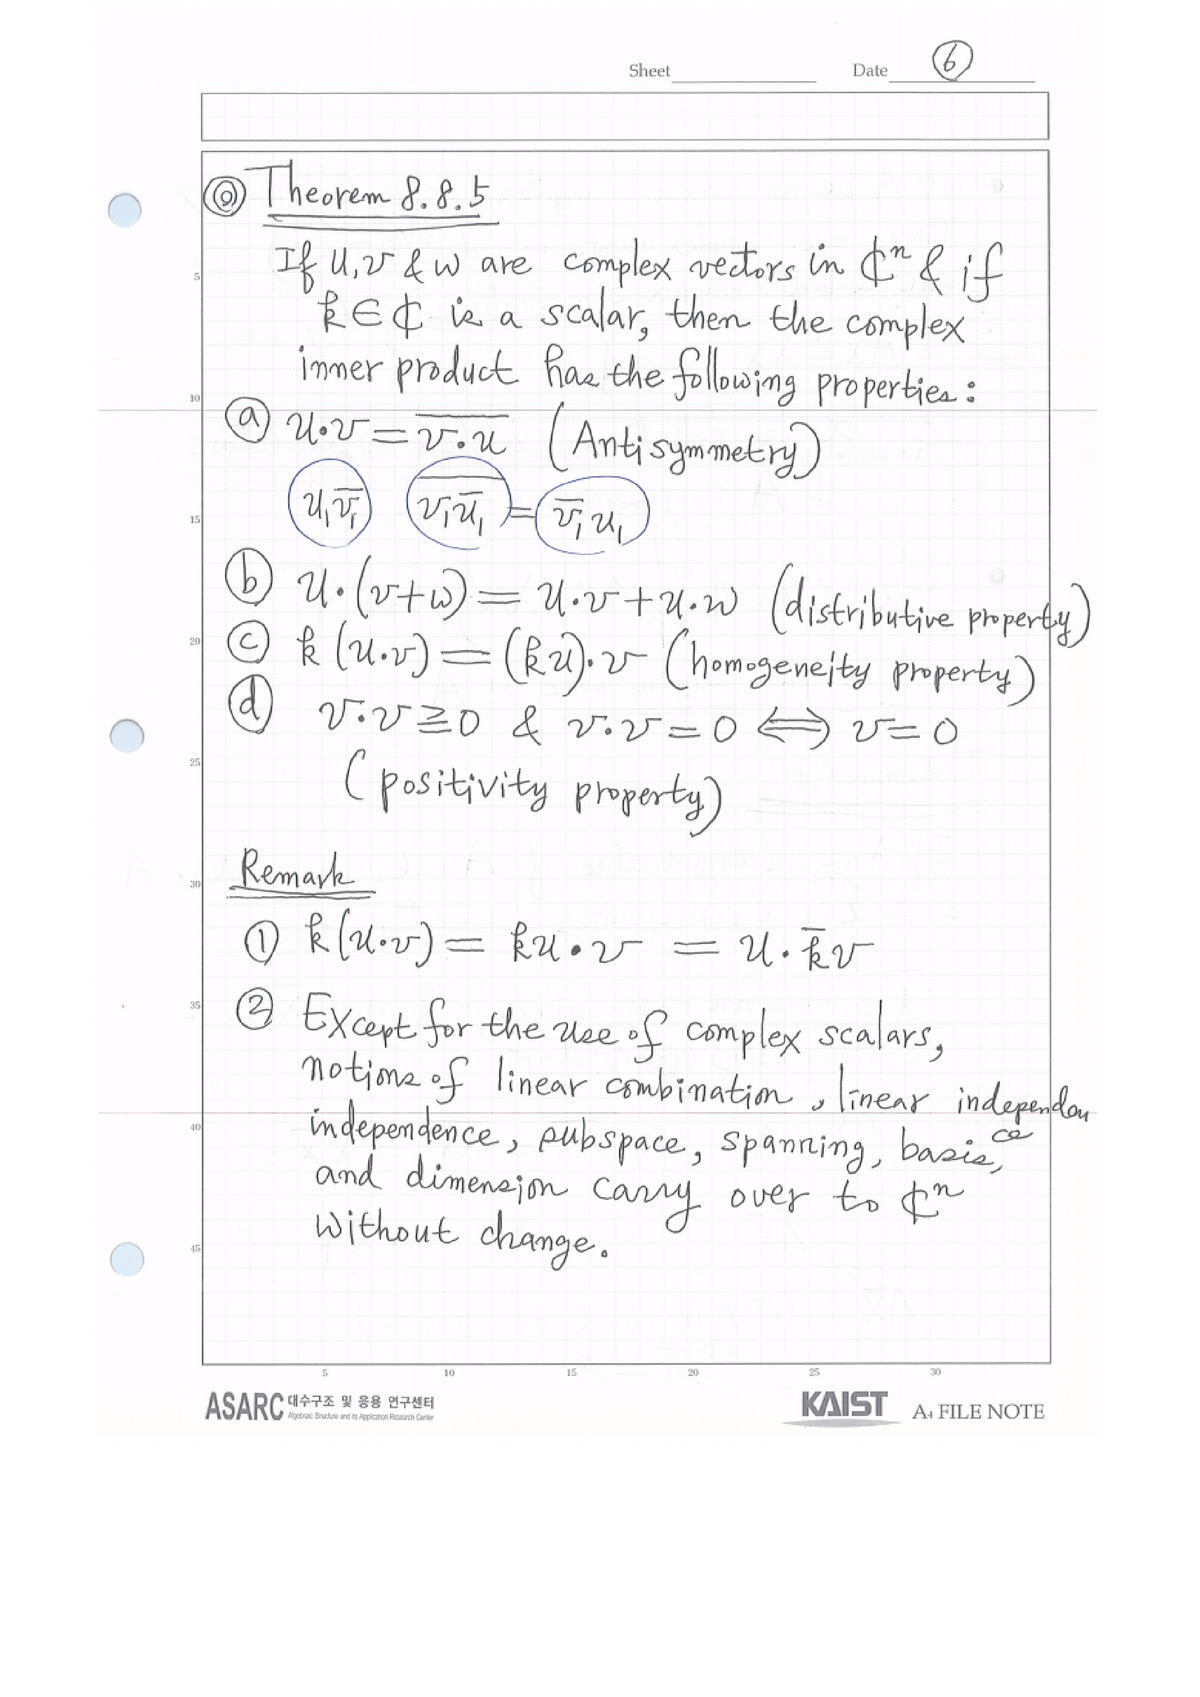 Sheet Date ⑥
◎ Theorem 8.8.5
If u, v & w are complex vectors in ℂⁿ & if
5
k ∈ ℂ is a scalar, then the complex
inner product has the following properties:
10
ⓐ u·v = \overline{v·u} (Antisymmetry)
u₁v̄₁ \overline{v₁ū₁} = v̄₁u₁
15
ⓑ u·(v+w) = u·v + u·w (distributive property)
20
ⓒ k(u·v) = (ku)·v (homogeneity property)
ⓓ v·v ≧ 0 & v·v = 0 ⟺ v = 0
25
(positivity property)
Remark
30
① k(u·v) = ku·v = u·k̄v
35
② Except for the use of complex scalars,
notions of linear combination, linear independen
ce
40
independence, subspace, spanning, basis,
and dimension carry over to ℂⁿ
without change.
45
5 10 15 20 25 30
ASARC 대수구조 및 응용 연구센터
Algebraic Structure and its Application Research Center
KAIST A4 FILE NOTE